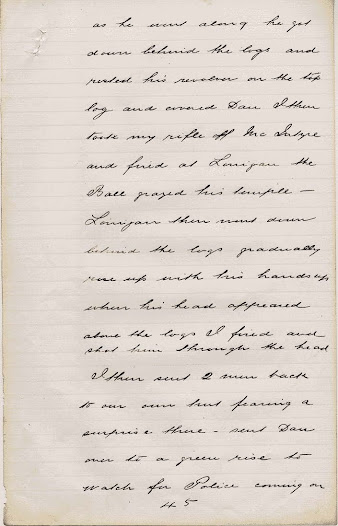 as he went along he got
down behind the logs and
rested his revolver on the top
log and covered Dan I then
took my rifle off Mc Intyre
and fired at Lonigan the
Ball grazed his temple –
Lonigan then went down
behind the logs gradually
rise up with his hands up
when his head appeared
above the logs I fired and
shot him through the head
I then sent 2 men back
to our own hut fearing a
surprise there – sent Dan
over to a green rise to
watch for Police coming on
45